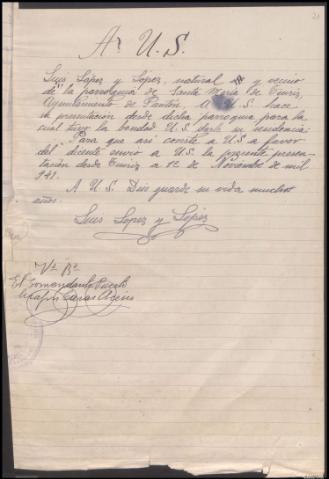 A U.S.
Luis López y López, natural y vecino
de la parroquia de Santa María de
Ayuntamiento de Pantón, A U.S. hace
su presentación desde dicha parroquia para la
cual tuvo la bondad U.S. darle su residencia:
Para que así conste a U.S a favor
del dicente envío a U.S. la presente presen-
tación desde a 12 de Noviembre de mil
941.
A U.S. Dios guarde su vida muchos
años.
Luis López y López
Vº Bº
El Comandante Puesto